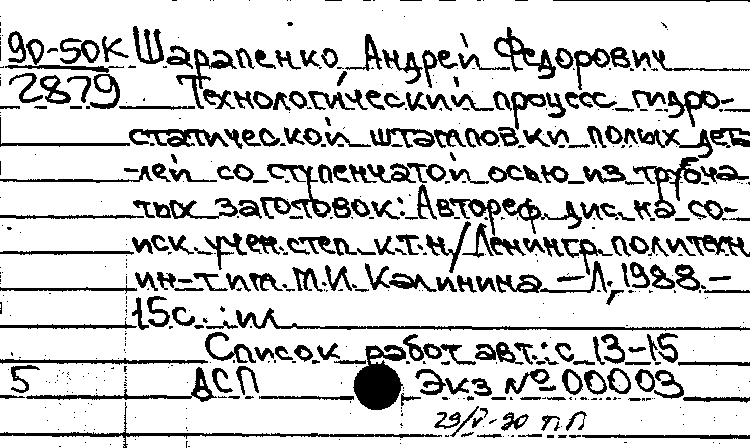 90-50К Шарапенко, Андрей Федорович
2879 Технологический процесс гидро-
статической штамповки полых дета
-лей со ступенчатой осью из трубча
тых заготовок: Автореф. дис. на со-
иск. учен. степ. к.т.н/Ленингр. политехн
ин-т им. М.И. Калинина. - Л, 1988. -
15с. : ил.
Список работ авт.: с 13-15
5 ДСП Экз № 00003
29/V-90 ПП